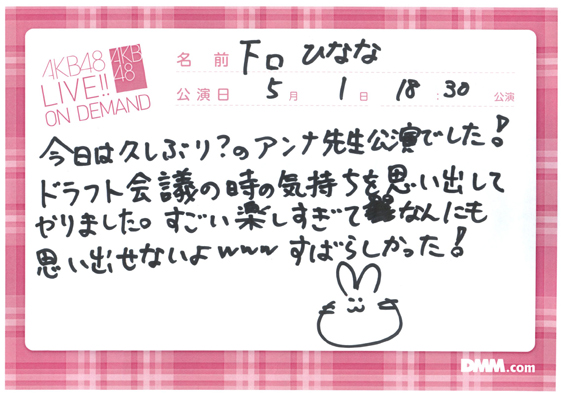 AKB48
LIVE!!
ON DEMAND
AKB
48
名前 下口ひなな
公演日 5月 1日 18:30 公演
今日は久しぶり?のアンナ先生公演でした!
ドラフト会議の時の気持ちを思い出して
やりました。すごい楽しすぎてなんにも
思い出せないよwww すばらしかった!
DMM.com